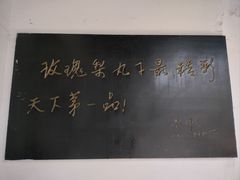 玫瑰梨丸子最精彩
天下第一品!